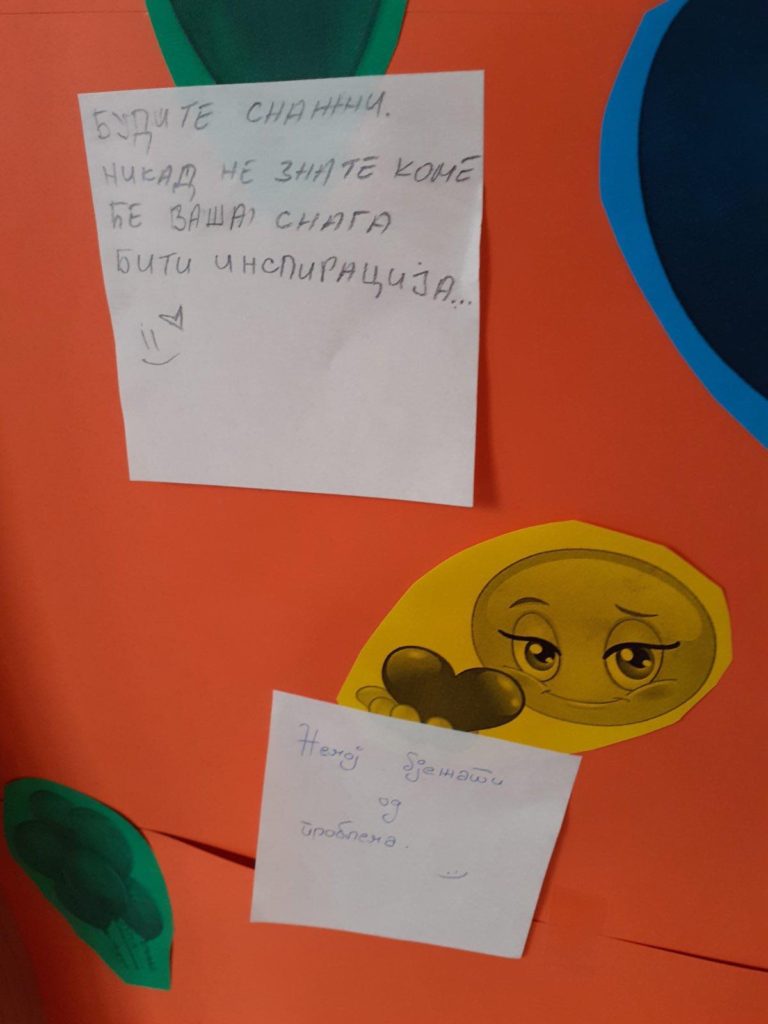 БУДИТЕ СНАЖНИ.
НИКАД НЕ ЗНАТЕ КОМЕ
ЋЕ ВАША СНАГА
БИТИ ИНСПИРАЦИЈА...
Немој бјежати
од
проблема.